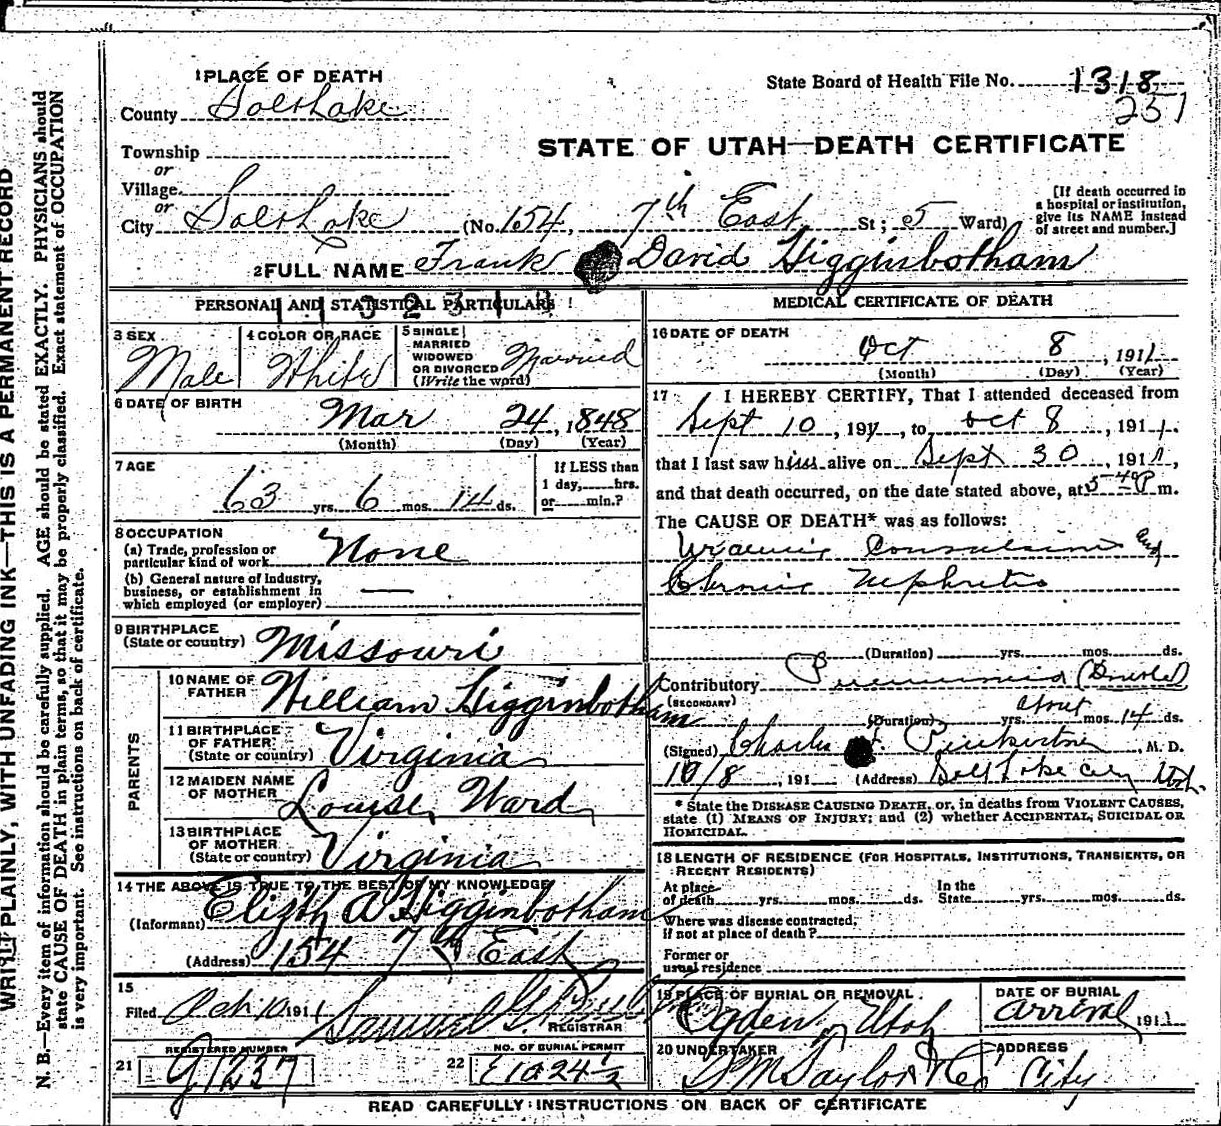 WRITE PLAINLY, WITH UNFADING INK—THIS IS A PERMANENT RECORD
N. B.—Every item of information should be carefully supplied. AGE should be stated EXACTLY. PHYSICIANS should
state CAUSE OF DEATH in plain terms, so that it may be properly classified. Exact statement of OCCUPATION
is very important. See instructions on back of certificate.
1 PLACE OF DEATH
State Board of Health File No. 1318
257
County Salt Lake
STATE OF UTAH—DEATH CERTIFICATE
Township
or
Village
or
City Salt Lake (No. 154, 7th East St; 5 Ward)
[If death occurred in
a hospital or institution,
give its NAME instead
of street and number.]
2 FULL NAME Frank David Higginbotham
PERSONAL AND STATISTICAL PARTICULARS
3 SEX
Male
4 COLOR OR RACE
White
5 SINGLE
MARRIED
WIDOWED
OR DIVORCED
(Write the word)
Married
6 DATE OF BIRTH
Mar 24, 1848
(Month) (Day) (Year)
7 AGE
63 yrs. 6 mos. 14 ds.
If LESS than
1 day, hrs.
or min.?
8 OCCUPATION
(a) Trade, profession or
particular kind of work None
(b) General nature of industry,
business, or establishment in
which employed (or employer) —
9 BIRTHPLACE
(State or country) Missouri
PARENTS
10 NAME OF
FATHER William Higginbotham
11 BIRTHPLACE
OF FATHER
(State or country) Virginia
12 MAIDEN NAME
OF MOTHER Louise Ward
13 BIRTHPLACE
OF MOTHER
(State or country) Virginia
14 THE ABOVE IS TRUE TO THE BEST OF MY KNOWLEDGE
(Informant) Elizth A Higginbotham
(Address) 154 7th East
15
Filed Oct 10 1911 Samuel G.
REGISTRAR
21 REGISTERED NUMBER
G1237
22 NO. OF BURIAL PERMIT
E1024½
MEDICAL CERTIFICATE OF DEATH
16 DATE OF DEATH
Oct 8, 1911
(Month) (Day) (Year)
17 I HEREBY CERTIFY, That I attended deceased from
Sept 10, 1911, to Oct 8, 1911.
that I last saw him alive on Sept 30, 1911,
and that death occurred, on the date stated above, at 5 40 P m.
The CAUSE OF DEATH* was as follows:
Uraemic Convulsions and
Chronic Nephritis
(Duration) yrs. mos. ds.
Contributory Pneumonia (Double)
(SECONDARY)
(Duration) yrs. about mos. 14 ds.
(Signed) Charles F. Pinkerton, M. D.
10/8, 191 (Address) Salt Lake City Utah.
* State the DISEASE CAUSING DEATH, or, in deaths from VIOLENT CAUSES,
state (1) MEANS OF INJURY; and (2) whether ACCIDENTAL, SUICIDAL OR
HOMICIDAL.
18 LENGTH OF RESIDENCE (FOR HOSPITALS, INSTITUTIONS, TRANSIENTS, OR
RECENT RESIDENTS)
At place
of death yrs. mos. ds.
In the
State yrs. mos. ds.
Where was disease contracted,
if not at place of death?
Former or
usual residence
19 PLACE OF BURIAL OR REMOVAL
Ogden, Utah
DATE OF BURIAL
arrival 1911
20 UNDERTAKER
S M Taylor & Co
ADDRESS
City
READ CAREFULLY INSTRUCTIONS ON BACK OF CERTIFICATE